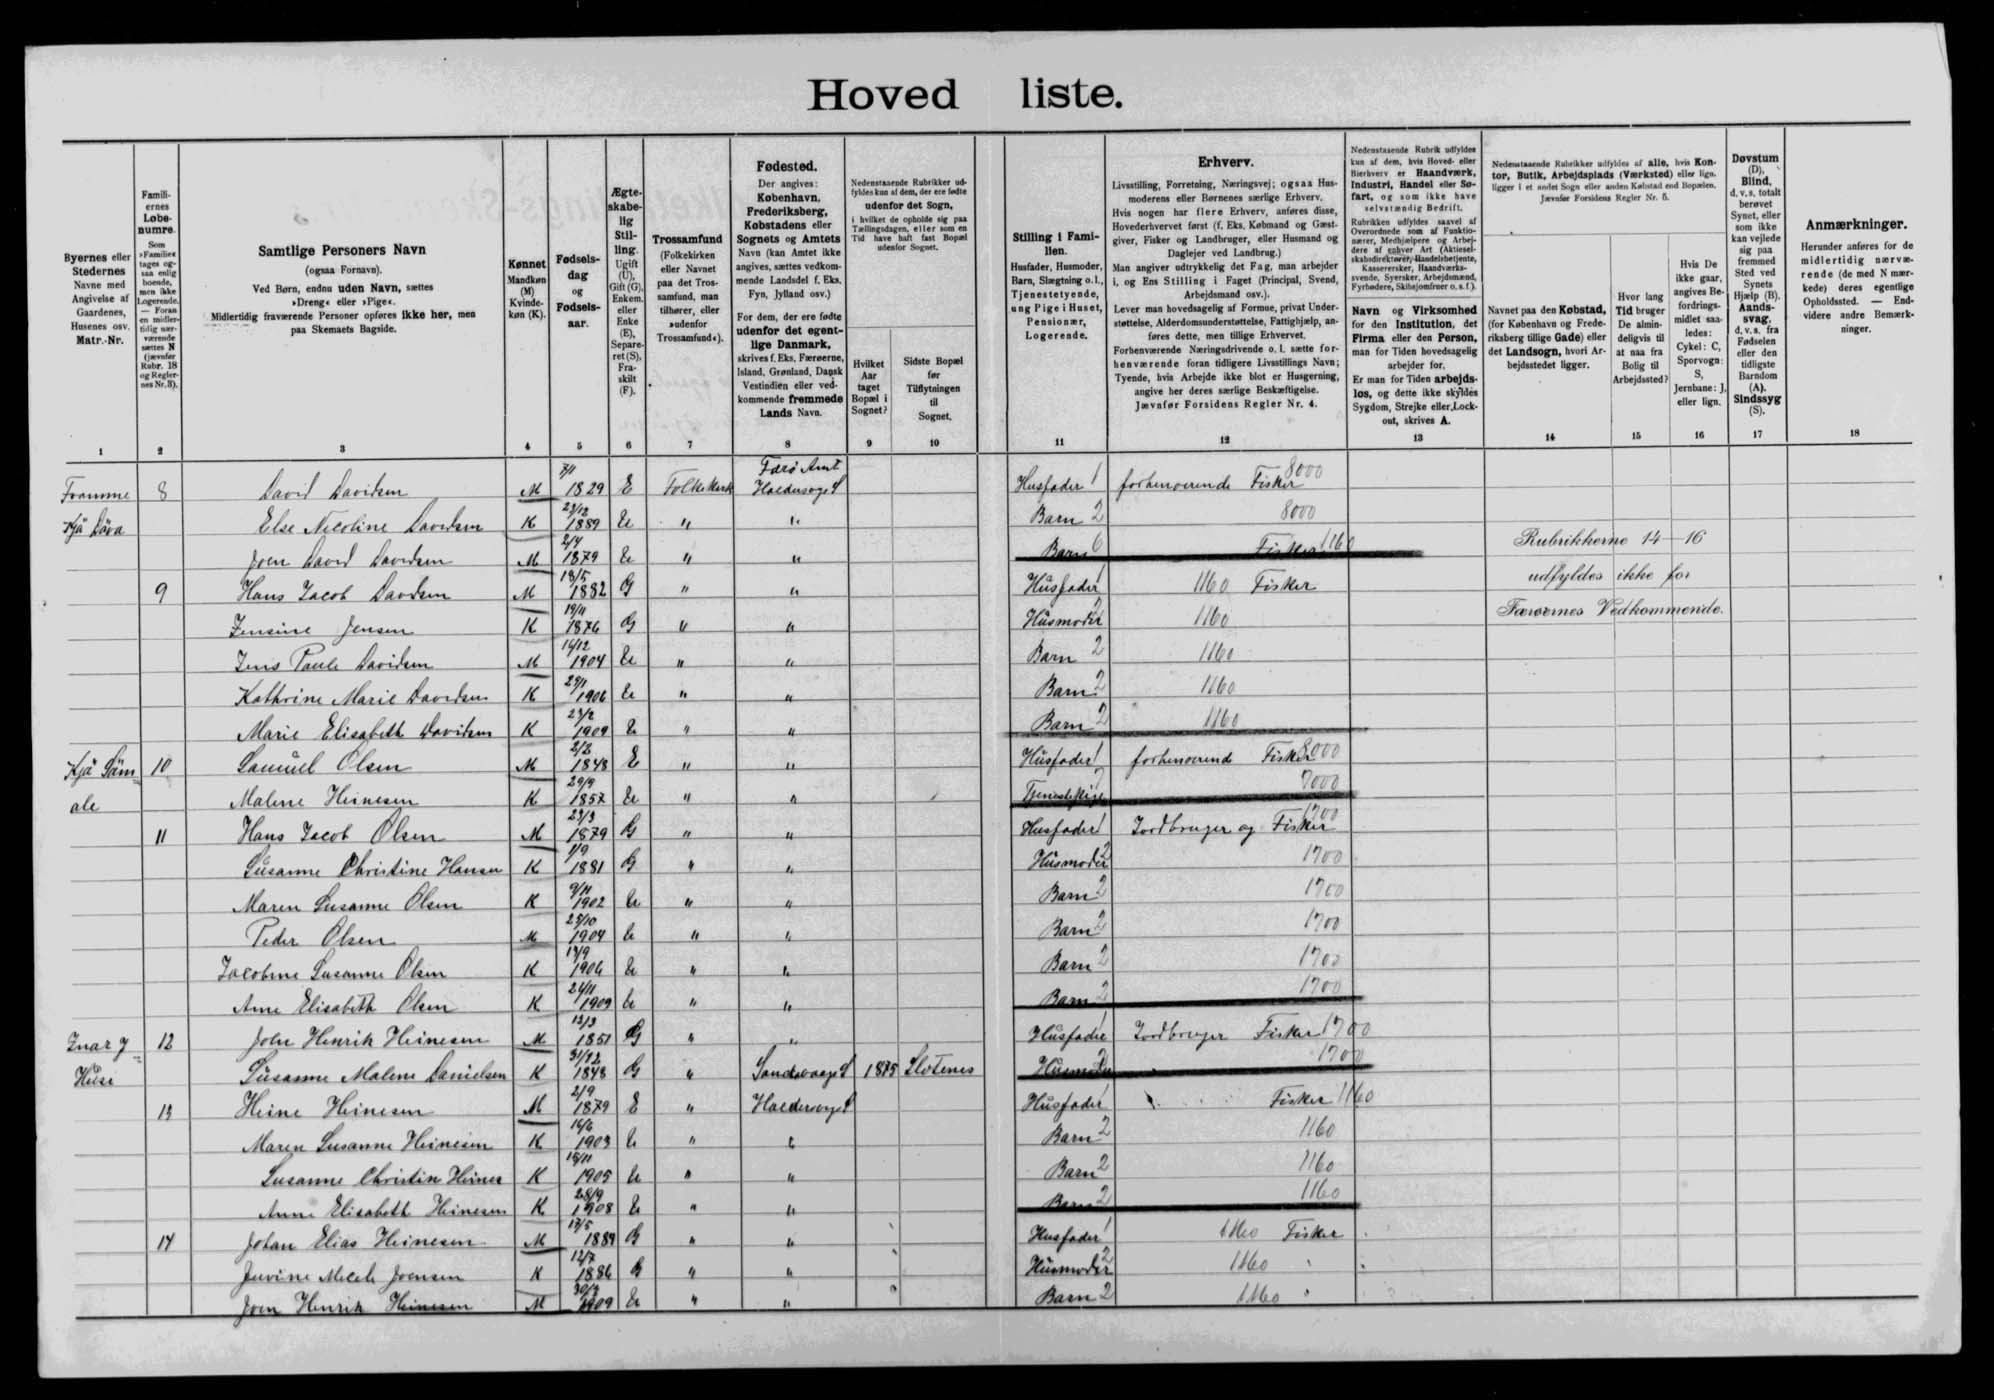 Hoved liste.
Byernes eller Stedernes Navne med Angivelse af Gaardenes, Husenes osv. Matr.-Nr.
Famili-ernes Løbe-numre. Som »Familie« tages og-saa enlig boende, men ikke Logerende. — Foran en midler-tidig nær-værende sættes N (jævnfør Rubr. 18 og Regler-nes Nr. 3).
Samtlige Personers Navn (ogsaa Fornavn). Ved Børn, endnu uden Navn, sættes »Dreng« eller »Pige«. Midlertidig fraværende Personer opføres ikke her, men paa Skemaets Bagside.
Kønnet Mandkøn (M) Kvinde-køn (K).
Fødsels-dag og Fødsels-aar.
Ægte-skabe-lig Stil-ling. Ugift (U), Gift (G), Enkem. eller Enke (E), Separe-ret (S), Fra-skilt (F).
Trossamfund (Folkekirken eller Navnet paa det Tros-samfund, man tilhører, eller »udenfor Trossamfund«).
Fødested. Der angives: København, Frederiksberg, Købstadens eller Sognets og Amtets Navn (kan Amtet ikke angives, sættes vedkom-mende Landsdel f. Eks. Fyn, Jylland osv.) For dem, der ere fødte udenfor det egent-lige Danmark, skrives f. Eks. Færøerne, Island, Grønland, Dansk Vestindien eller ved-kommende fremmede Lands Navn.
Nedenstaaende Rubrikker ud-fyldes kun af dem, der ere fødte udenfor det Sogn, i hvilket de opholde sig paa Tællingsdagen, eller som en Tid have haft fast Bopæl udenfor Sognet.
Hvilket Aar taget Bopæl i Sognet?
Sidste Bopæl før Tilflytningen til Sognet.
Stilling i Fami-lien. Husfader, Husmoder, Barn, Slægtning o. l., Tjenestetyende, ung Pige i Huset, Pensionær, Logerende.
Erhverv. Livsstilling, Forretning, Næringsvej; ogsaa Hus-moderens eller Børnenes særlige Erhverv. Hvis nogen har flere Erhverv, anføres disse, Hovederhvervet først (f. Eks. Købmand og Gæst-giver, Fisker og Landbruger, eller Husmand og Daglejer ved Landbrug.) Man angiver udtrykkelig det Fag, man arbejder i, og Ens Stilling i Faget (Principal, Svend, Arbejdsmand osv.). Lever man hovedsagelig af Formue, privat Under-støttelse, Alderdomsunderstøttelse, Fattighjælp, an-føres dette, men tillige Erhvervet. Forhenværende Næringsdrivende o. l. sætte for-henværende foran tidligere Livsstillings Navn; Tyende, hvis Arbejde ikke blot er Husgerning, angive her deres særlige Beskæftigelse. Jævnfør Forsidens Regler Nr. 4.
Nedenstaaende Rubrik udfyldes kun af dem, hvis Hoved- eller Bierhverv er Haandværk, Industri, Handel eller Sø-fart, og som ikke have selvstændig Bedrift. Rubrikken udfyldes saavel af Overordnede som af Funktio-nærer, Medhjælpere og Arbej-dere af enhver Art (Aktiesel-skabsdirektører, Handelsbetjente, Kasserersker, Haandværks-svende, Syersker, Arbejdsmænd, Fyrbødere, Skibsjomfruer o. s. f.).
Navn og Virksomhed for den Institution, det Firma eller den Person, man for Tiden hovedsagelig arbejder for. Er man for Tiden arbejds-løs, og dette ikke skyldes Sygdom, Strejke eller Lock-out, skrives A.
Nedenstaaende Rubrikker udfyldes af alle, hvis Kon-tor, Butik, Arbejdsplads (Værksted) eller lign. ligger i et andet Sogn eller anden Købstad end Bopælen. Jævnfør Forsidens Regler Nr. 5.
Navnet paa den Købstad, (for København og Frede-riksberg tillige Gade) eller det Landsogn, hvori Ar-bejdsstedet ligger.
Hvor lang Tid bruger De almin-deligvis til at naa fra Bolig til Arbejdssted?
Hvis De ikke gaar, angives Be-fordrings-midlet saa-ledes: Cykel: C, Sporvogn: S, Jernbane: J, eller lign.
Døvstum (D), Blind, d. v. s. totalt berøvet Synet, eller som ikke kan vejlede sig paa fremmed Sted ved Synets Hjælp (B). Aands-svag, d. v. s. fra Fødselen eller den tidligste Barndom (A). Sindssyg (S).
Anmærkninger. Herunder anføres for de midlertidig nærvæ-rende (de med N mær-kede) deres egentlige Opholdssted. — End-videre andre Bemærk-ninger.
1 2 3 4 5 6 7 8 9 10 11 12 13 14 15 16 17 18
8 David Davidsen M 7/11 1829 E Folkekirk Færø Amt Husfader 1 Fisker 8000
Else Nicoline Davidsen K 23/12 1889 " " Barn 2 8000
Joen David Davidsen M 2/4 1879 " " Barn 6 Fisker 1160
Rubrikkerne 14—16
9 Hans Jacob Davidsen M 1882 G " " Husfader 1 1160 Fisker
udfyldes ikke for
Jensine Jensen K 19/11 1876 G " " Husmoder 2 1160
Færøernes Vedkommende.
Jens Paule Davidsen M 16/12 1904 " " Barn 2 1160
Kathrine Marie Davidsen K 1906 " " Barn 2 1160
Marie Elisabeth Davidsen K 1909 " " Barn 2 1160
10 Samuel Olsen M 1848 E " " Husfader 1 Fisker 8000
ale Malene Heinesen K 29/9 1857 " " 7000
11 Hans Jacob Olsen M 1879 G " " Husfader 1 Jordbruger og Fisker 1700
Susanne Christine Hansen K 1/9 1881 G " " Husmoder 2 1700
Maren Susanne Olsen K 9/11 1902 " " Barn 2 1700
Peder Olsen M 1904 " " Barn 2 1700
Jacobine Susanne Olsen K 1906 " " Barn 2 1700
Elisabeth Olsen K 24/11 1909 " " Barn 2 1700
12 Joen Henrik Heinesen M 13/3 1851 G " " Husfader 1 Jordbruger Fisker 1700
Susanne Malene Danielsen K 31/12 1848 G " 1875 Husmoder 2 1700
13 Heine Heinesen M 2/9 1879 E " Husfader Fisker 1160
Maren Susanne Heinesen K 16/6 1903 " " Barn 2 1160
Susanne Christin Heines K 15/11 1905 " " Barn 2 1160
Anne Elisabeth Heinesen K 28/9 1908 " " Barn 2 1160
14 Johan Elias Heinesen M G " " Husfader 1 1160 Fisker
Joensen K 12/7 1886 G " " Husmoder 2 1160
Joen Henrik Heinesen M 1909 " " Barn 2 1160